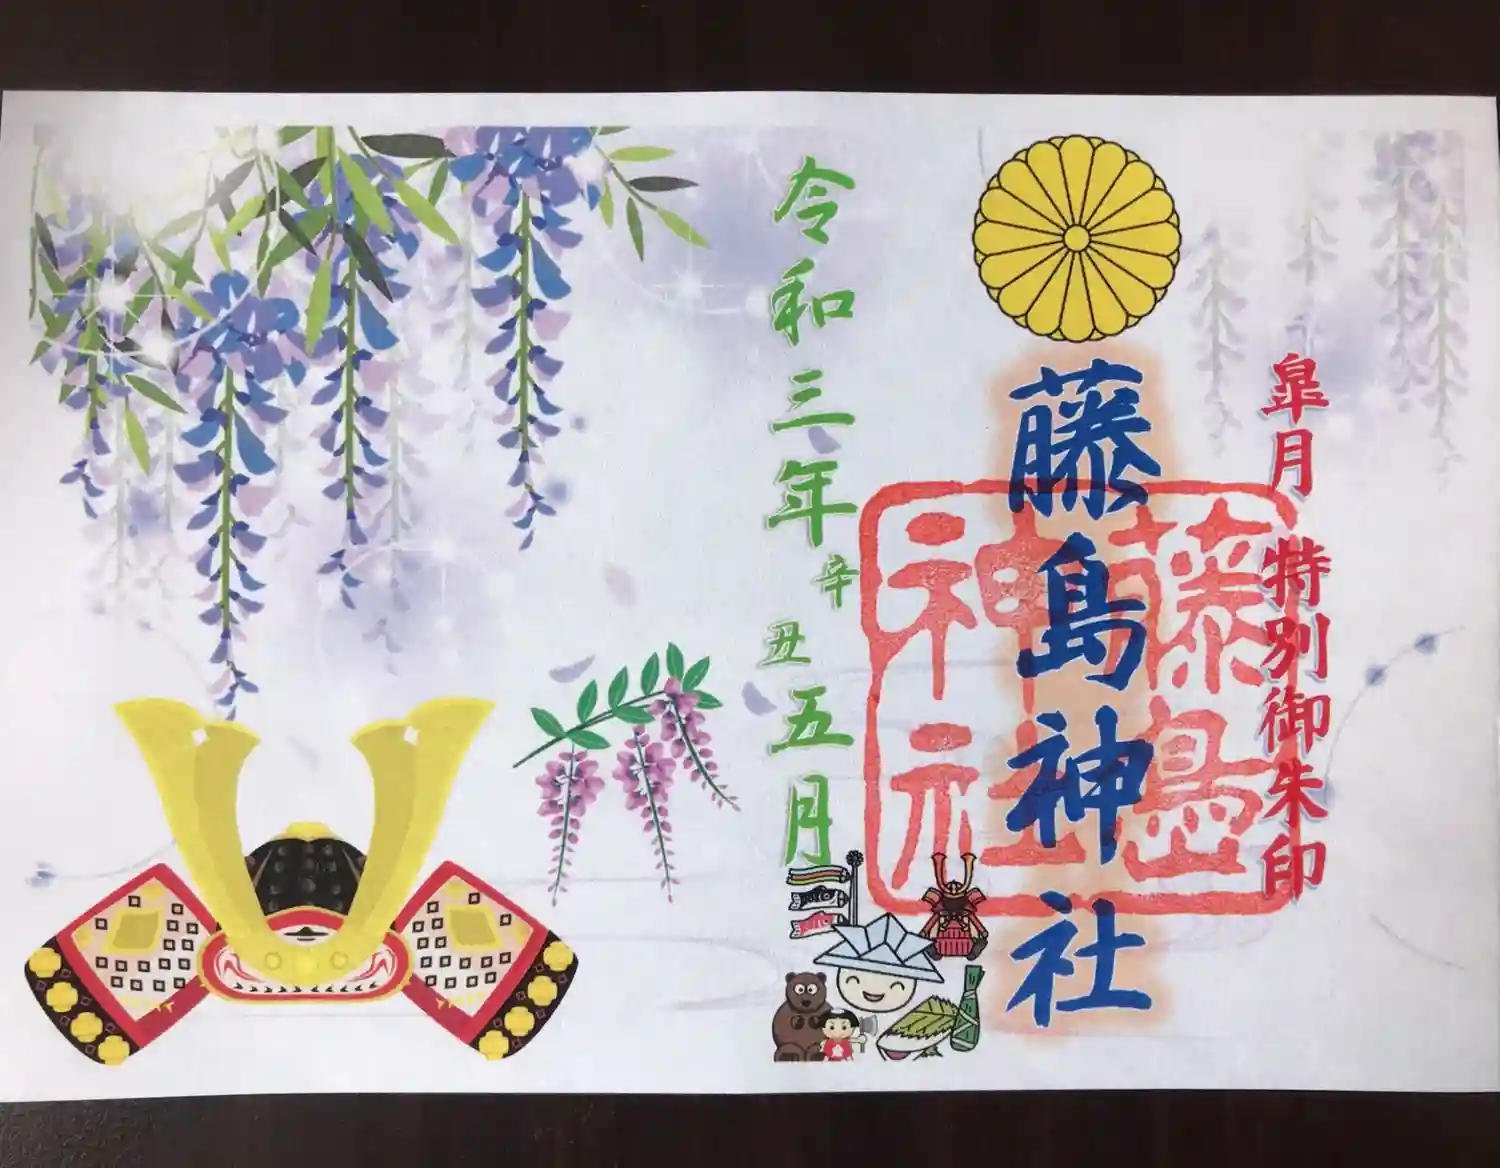 皐月 特別御朱印
藤島神社
藤島神社
令和三年辛丑五月